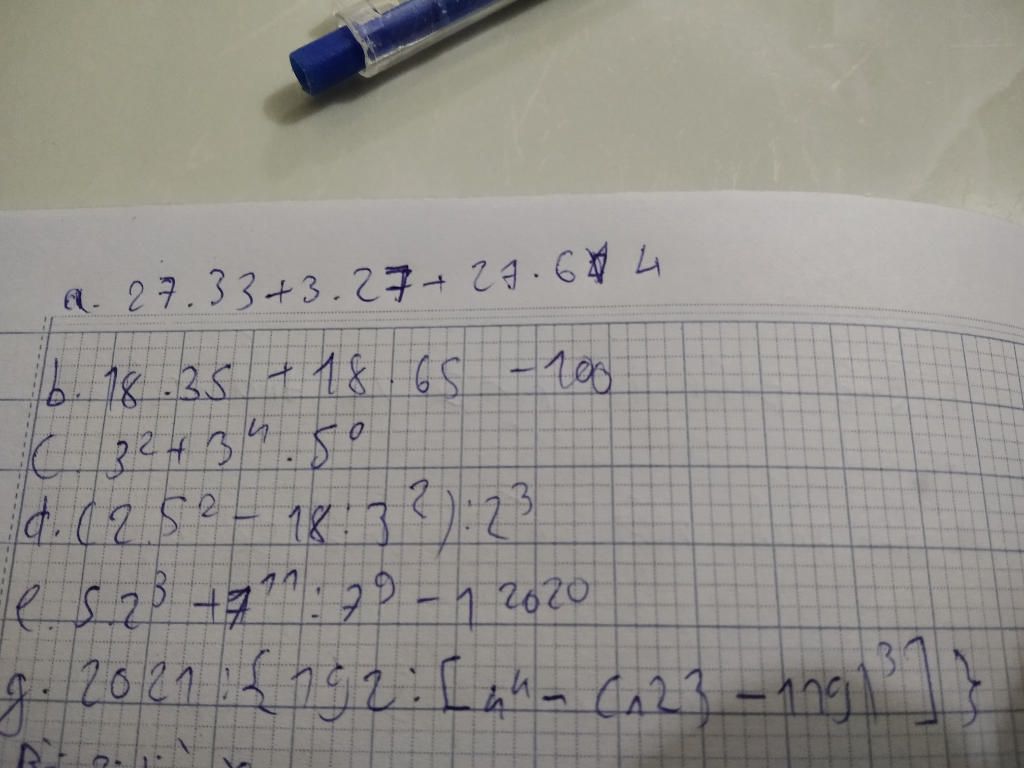 a. 27.33+3.27+ 27.6 4
b. 18.35 + 18.65 -100
C. 3² + 3⁴ . 5⁰
d. (2.5² - 18:3²):2³
e. 5.2³ +7¹¹:7⁹ - 1²⁰²⁰
g. 2021:{192:[4⁴- (123 -119)³]}